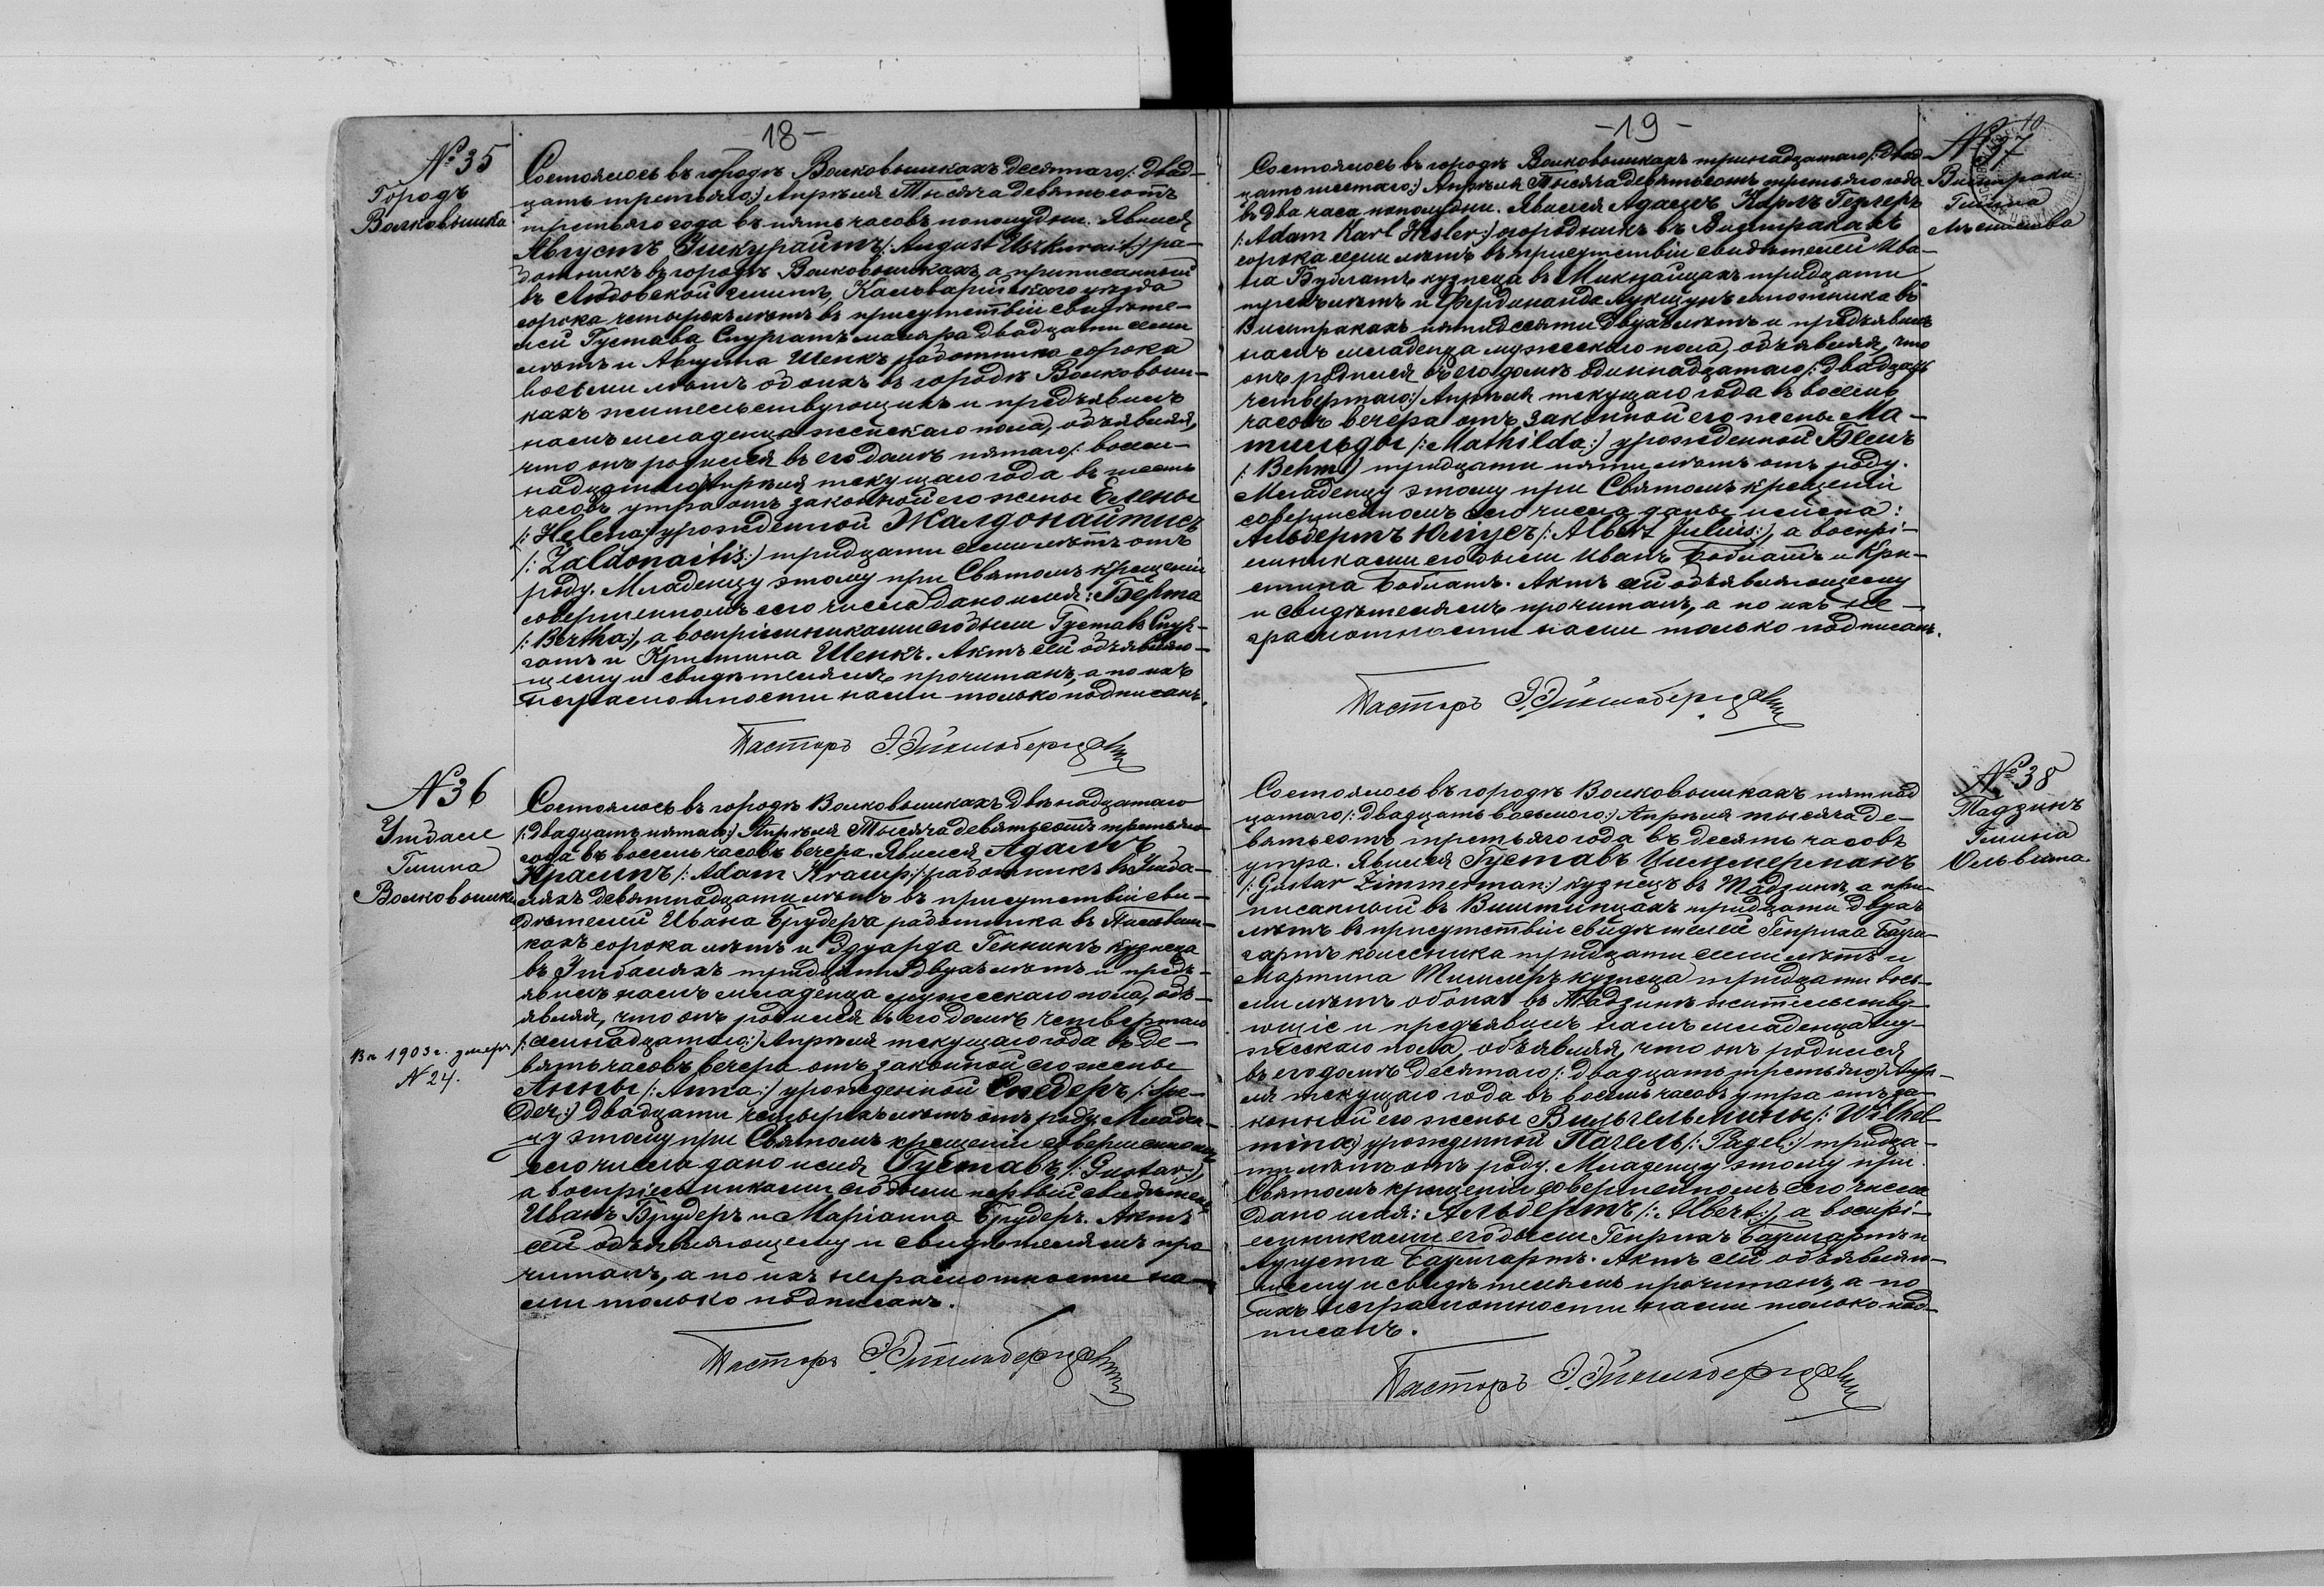 18 –
№ 35
Городъ
Волковышки
Состоялось въ городѣ Волковышкахъ десятаго /: двад-
цать третьяго :/ Апрѣля Тысяча девятьсотъ
третьяго года въ пять часовъ пополудни. Явился
Августъ Ушкурайтъ /: August Uszkurait :/ ра-
ботникъ въ городѣ Волковышкахъ, а приписанный
въ Людовской гминѣ, Кальварійскаго уѣзда
сорока четырехъ лѣтъ въ присутствіи свидѣте-
лей Густава Спургатъ маляра двадцати семи
лѣтъ и Августа Шенкъ работника сорока
восьми лѣтъ обоихъ въ городѣ Волковыш-
кахъ жительствующихъ и предъявилъ
намъ младенца женскаго пола, объявляя,
что онъ родился въ его домѣ пятаго /: восем-
надцатаго :/ Апрѣля текущаго года въ шесть
часовъ утра отъ законной его жены Елены
/: Helena :/ урожденной Жалдонайтисъ
/: Zaldonaitis :/ тридцати семи лѣтъ отъ
роду. Младенцу этому при Святомъ крещеніи
совершенномъ сего числа дано имя: Берта
/: Bertha :/, а воспріемниками его были Густавъ Спур-
гатъ и Кристина Шенкъ. Актъ сей объявляю-
щему и свидѣтелямъ прочитанъ, а по ихъ
неграмотности нами только подписанъ.
Пасторъ
№ 36
Уждале
Гмина
Волковышки
Состоялось въ городѣ Волковышкахъ двѣнадцатаго
/: двадцать пятаго :/ Апрѣля Тысяча девятьсотъ третьяго
года въ восемь часовъ вечера. Явился Адамъ
Крампъ /: Adam Kramp :/ работникъ въ Ужда-
ляхъ девятнадцати лѣтъ въ присутствіи сви-
дѣтелей Ивана Брудера работника въ
кахъ сорока лѣтъ и Эдуарда Геннигъ кузнеца
въ Уждаляхъ тридцати двухъ лѣтъ и предъ-
явилъ намъ младенца мужескаго пола, объ-
являя, что онъ родился въ его домѣ четвертаго
/: семнадцатаго :/ Апрѣля текущаго года въ де-
вять часовъ вечера отъ законной его жены
Анны /: Anna :/ урожденной Снедеръ /: Sne-
der :/ двадцати четырехъ лѣтъ отъ роду. Младен-
цу этому при Святомъ крещеніи совершенномъ
сего числа дано имя Густавъ /: Gustav :/,
а воспріемниками его были первый свидѣтель
Иванъ Брудеръ и Маріанна Брудеръ. Актъ
сей объявляющему и свидѣтелямъ про-
читанъ, а по ихъ неграмотности на-
ми только подписанъ.
Въ 1903 г. умеръ
№ 24.
Пасторъ
– 19 –
№ 37
Гмина
Состоялось въ городѣ Волковышкахъ тринадцатаго /: двад-
цать шестаго :/ Апрѣля Тысяча девятьсотъ третьяго года
въ два часа пополудни. Явился Адамъ Карлъ Геслеръ
/: Adam Karl Hesler :/ огородникъ въ Виштракахъ
сорока семи лѣтъ въ присутствіи свидѣтелей Ива-
на Бублатъ кузнеца въ тридцати
трехъ лѣтъ и Фердинанда Лукшунъ сапожника въ
Виштракахъ пятидесяти двухъ лѣтъ и предъявилъ
намъ младенца мужескаго пола, объявляя, что
онъ родился въ его домѣ одиннадцатаго /: двадцать
четвертаго :/ Апрѣля текущаго года въ восемь
часовъ вечера отъ законной его жены Ма-
тильды /: Mathilda :/ урожденной Бемъ
/: Behm :/ тридцати пяти лѣтъ отъ роду.
Младенцу этому при Святомъ крещеніи
совершенномъ сего числа даны имена:
Альбертъ Юлiусъ /: Albert Julius :/, а воспрі-
емниками его были Иванъ Боблатъ и Кри-
стина Боблатъ. Актъ сей объявляющему
и свидѣтелямъ прочитанъ, а по ихъ не-
грамотности нами только подписанъ.
Пасторъ
№ 38
Тадзинъ
Гмина
Ольвита
Состоялось въ городѣ Волковышкахъ пятнад-
цатаго /: двадцать восьмого :/ Апрѣля тысяча де-
вятьсотъ третьяго года въ десять часовъ
утра. Явился Густавъ Циммерманъ
/: Gustav Zimmerman :/ кузнецъ въ Тадзинѣ, а при-
писанный въ Виштинцахъ тридцати двухъ
лѣтъ въ присутствіи свидѣтелей Генриха Баум-
гартъ колесника тридцати семи лѣтъ и
Мартина кузнеца тридцати вось-
ми лѣтъ обоихъ въ Тадзинѣ жительству-
ющіе и предъявилъ намъ младенца му-
жескаго пола, объявляя, что онъ родился
въ его домѣ десятаго /: двадцать третьяго :/ Апрѣ-
ля текущаго года въ восемь часовъ утра отъ за-
конной его жены Вильгельмины /: Wilhel-
mina :/ урожденной Пагель /: Pagel :/ тридца-
ти лѣтъ отъ роду. Младенцу этому при
Святомъ крещеніи совершенномъ сего числа
дано имя: Альбертъ /: Albert :/, а воспрі-
емниками его были Генрихъ Баумгартъ и
Августа Баумгартъ. Актъ сей объявляю-
щему и свидѣтелямъ прочитанъ, а по
ихъ неграмотности нами только под-
писанъ.
Пасторъ